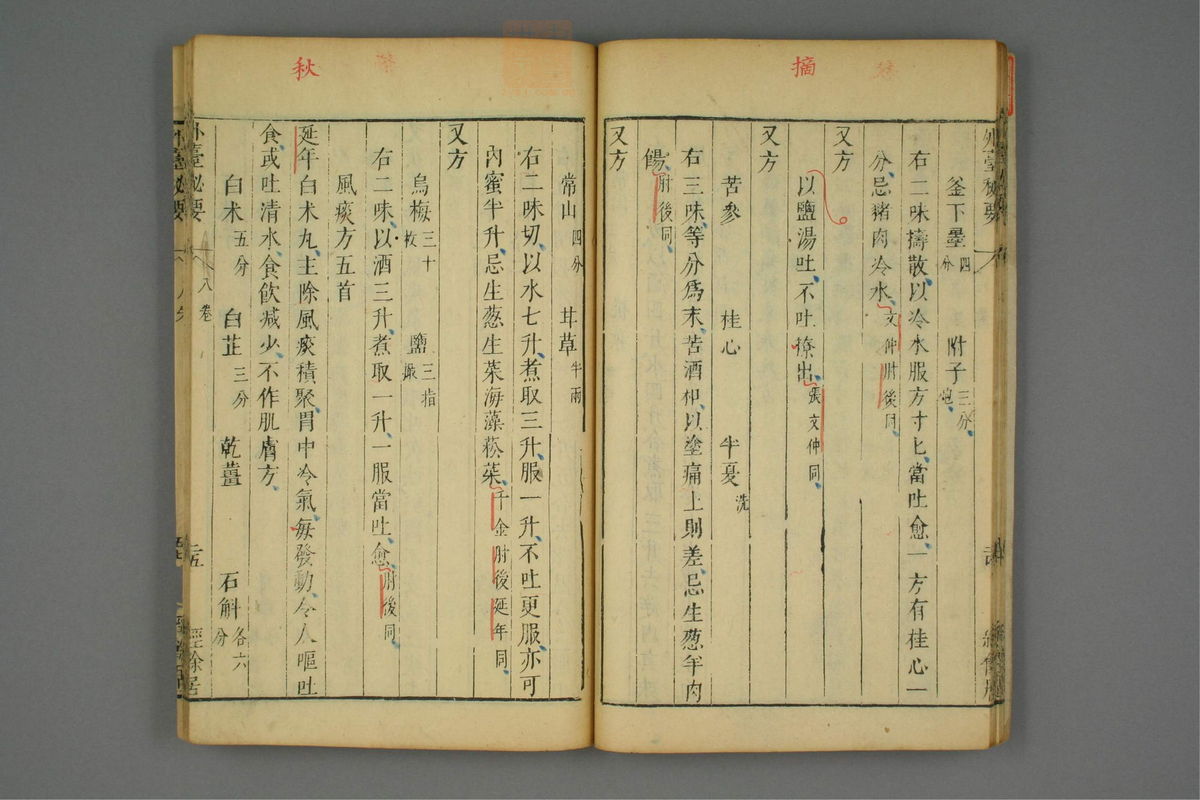 摘
外臺秘要
釜下墨四分 附子三分炮
右二味擣散以冷水服方寸匕當吐愈一方有桂心一
分忌豬肉冷水文仲肘後同
又方
以鹽湯吐不吐撩出張文仲同
又方
苦參 桂心 半夏洗
右三味等分爲末苦酒和以塗痛上則差忌生葱羊肉
餳肘後同
又方
秋
常山四分 甘草半兩
右二味切以水七升煮取三升服一升不吐更服亦可
內蜜半升忌生葱生菜海藻菘菜千金肘後延年同
又方
烏梅三十枚 鹽三指撮
右二味以酒三升煮取一升一服當吐愈肘後同
風痰方五首
延年白朮丸主除風痰積聚胃中冷氣每發動令人嘔吐
食或吐清水食飲減少不作肌膚方
白朮五分 白芷三分 乾薑 石斛各六分
外臺秘要
八卷
經餘居